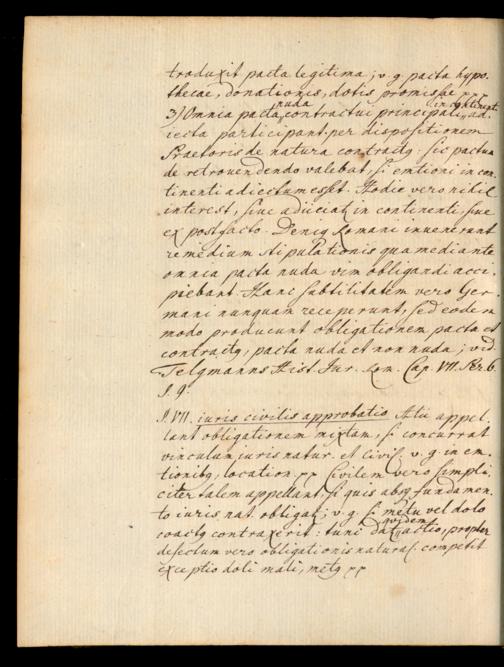 traduxit pacta legitima; v. g. pacta hypo-
thecae, donationis, dotis promissae
3) Omnia pacta nuda contractui principali in continent. ad-
iecta participant per dispositionem
Praetoris de natura contractq: sic pactum
de retrovendendo valebat, si emtioni in con-
tinenti adiectum esset. Hodie vero nihil
interest, sive adiiciatur in continenti, sive
ex postfacto. Deniq Romani invenerunt
remedium stipulationis qua mediante
omnia pacta nuda vim obligandi acci-
piebant. Hanc subtilitatem vero Ger-
mani nunquam receperunt, sed eodem
modo producunt obligationem pacta et
contractq, pacta nuda et non nuda; vid.
Telgmanns Hist. Jur. Rom. Cap. VII. Per. 6.
§. 9.
§. VII. iuris civilis approbatio Alii appel-
lant obligationem mixtam, si concurrat
vinculum iuris natur. et civil: v. g. in em-
tionibq, location. Civilem vero simpli-
citer talem appellant, si quis absq fundamen-
to iuris nat. obligat; v. g. si metu vel dolo
coactq contraxerit: tunc datur quidem actio, propter
defectum vero obligationis natural. competit
exceptio doli mali, metq